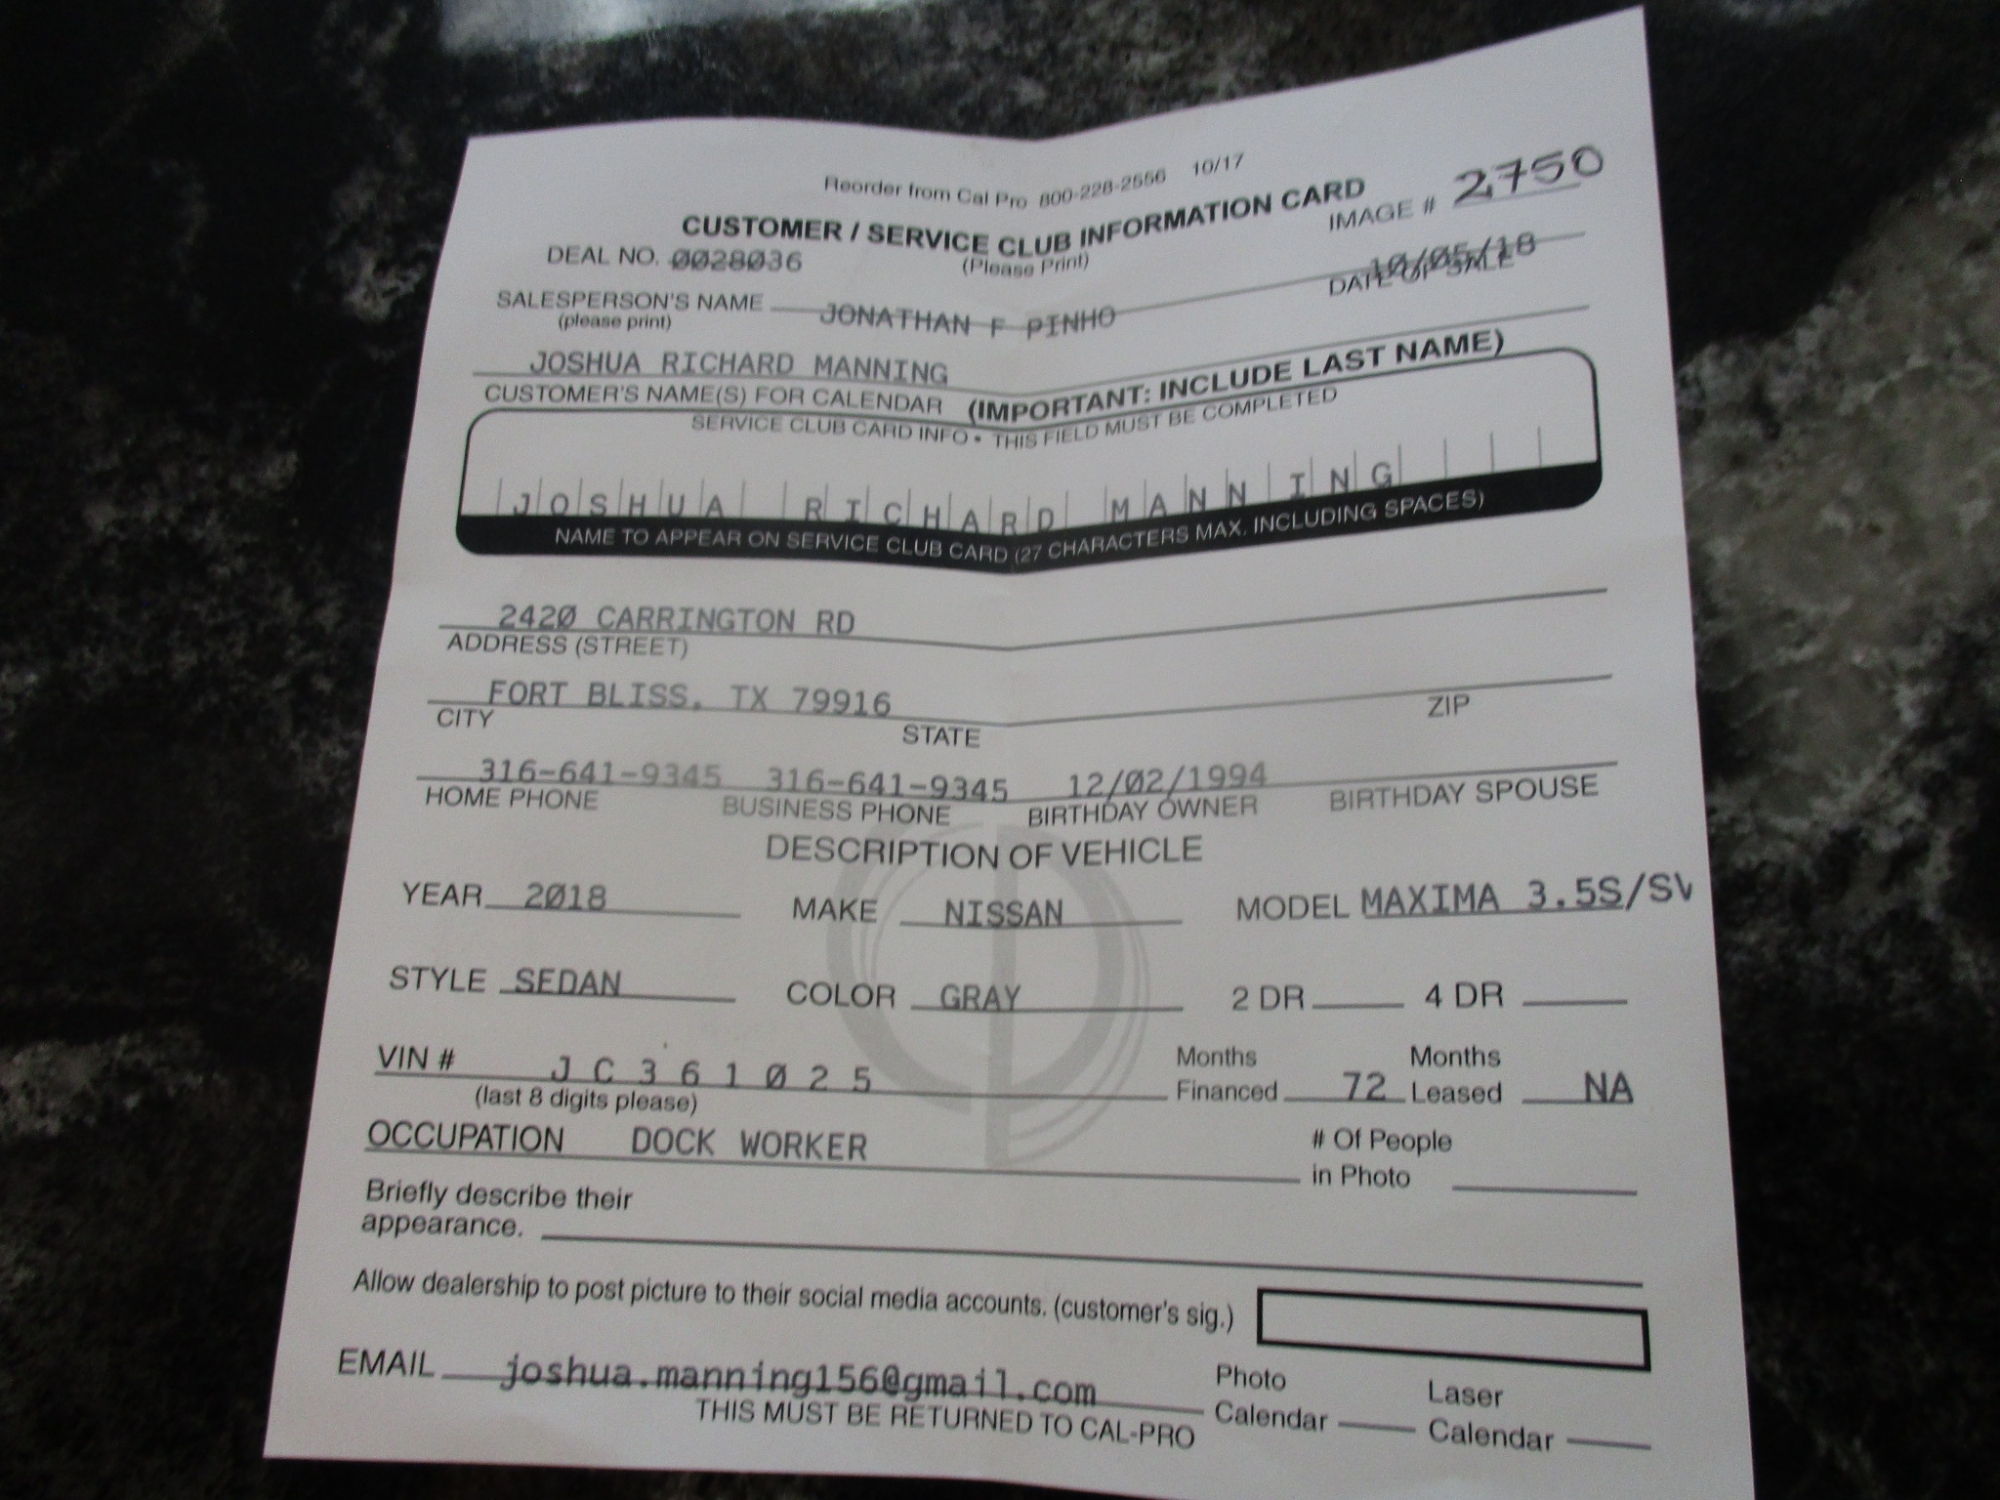 Reorder from Cal Pro 800-228-2556 10/17
CUSTOMER / SERVICE CLUB INFORMATION CARD
IMAGE # 2750
DEAL NO. 0028036
(Please Print)
10/05/18
DATE OF SALE
SALESPERSON'S NAME JONATHAN F PINHO
(please print)
JOSHUA RICHARD MANNING
CUSTOMER'S NAME(S) FOR CALENDAR (IMPORTANT: INCLUDE LAST NAME)
SERVICE CLUB CARD INFO • THIS FIELD MUST BE COMPLETED
JOSHUA RICHARD MANNING
NAME TO APPEAR ON SERVICE CLUB CARD (27 CHARACTERS MAX. INCLUDING SPACES)
2420 CARRINGTON RD
ADDRESS (STREET)
FORT BLISS, TX 79916
CITY STATE ZIP
316-641-9345 316-641-9345 12/02/1994
HOME PHONE BUSINESS PHONE BIRTHDAY OWNER BIRTHDAY SPOUSE
DESCRIPTION OF VEHICLE
YEAR 2018 MAKE NISSAN MODEL MAXIMA 3.5S/SV
STYLE SEDAN COLOR GRAY 2 DR 4 DR
VIN # JC361025 Months Financed 72 Months Leased NA
(last 8 digits please)
OCCUPATION DOCK WORKER # Of People in Photo
Briefly describe their
appearance.
Allow dealership to post picture to their social media accounts. (customer's sig.)
EMAIL joshua.manning156@gmail.com Photo Calendar Laser Calendar
THIS MUST BE RETURNED TO CAL-PRO